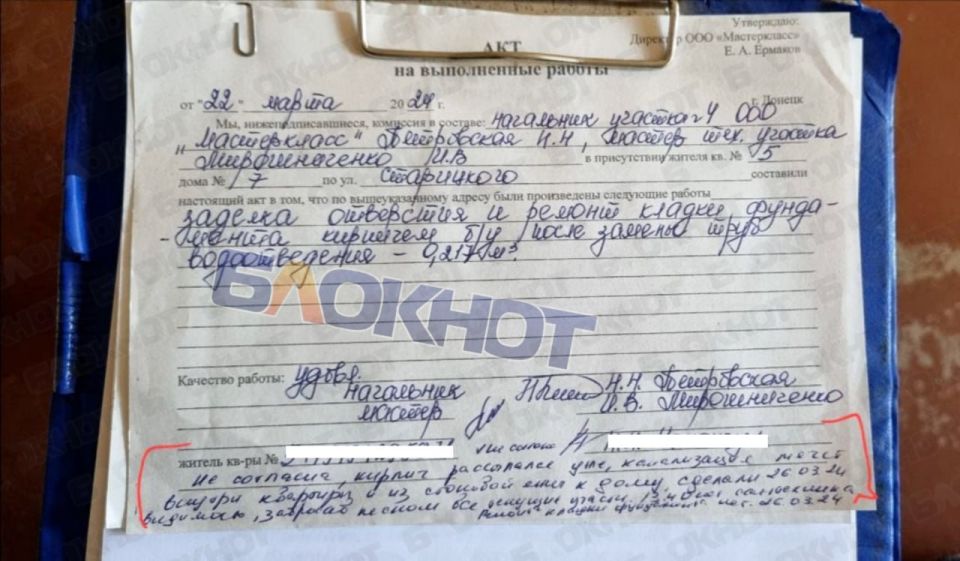 Утверждаю:
АКТ
Директор ООО «Мастеркласс»
Е. А. Ермаков
на выполненные работы
от "22" марта 2024 г. г. Донецк
Мы, нижеподписавшиеся, комиссия в составе: начальник участка 4 ООО
„Мастеркласс" Петровская Н.Н, мастер тех. участка
Мирошниченко И.В в присутствии жителя кв. № 5
дома № 7 по ул. Старицкого составили
настоящий акт в том, что по вышеуказанному адресу были произведены следующие работы
заделка отверстия и ремонт кладки фунда-
-мента кирпичем б/у после замены труб
водоотведения - 0,217 м³.
БЛОКНОТ
Качество работы: удовл.
Начальник Н.Н. Петровская
мастер И.В. Мирошниченко
житель кв-ры № не согласна
Не согласна, кирпич рассыпался уже, канализация течет
внутри квартиры и из столовой еще к дому, сделали 26.03.24
видимость, забросав песком все текущие участки.
ремонт кладки фундамента 26.03.24